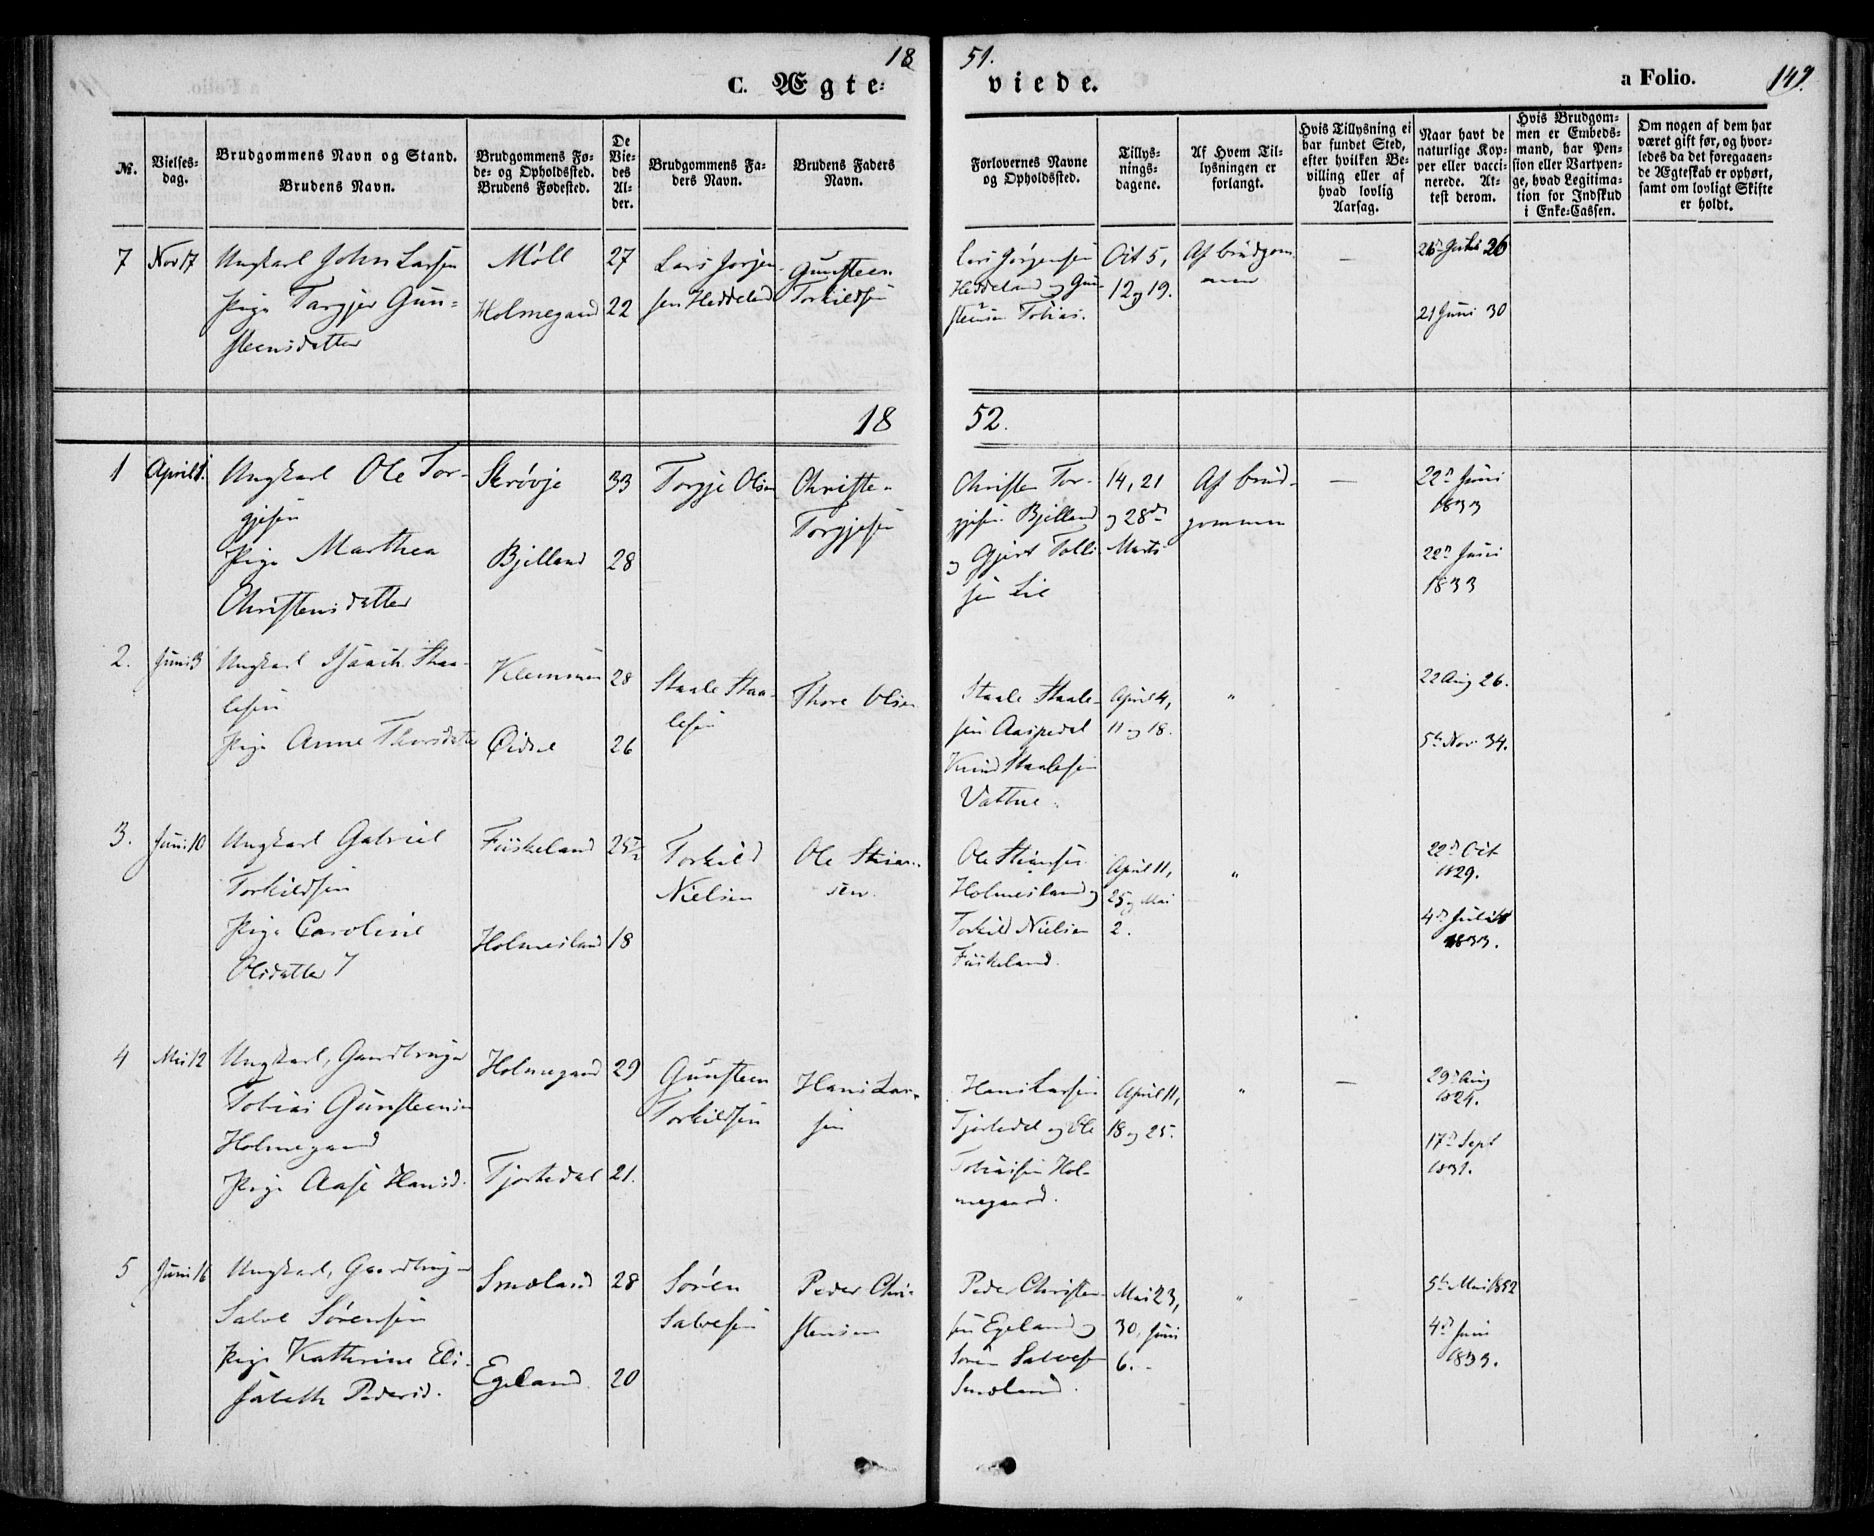 18 51.
C. Ægte- viede. a Folio. 149.
№.
Vielses-
dag.
Brudgommens Navn og Stand.
Brudens Navn.
Brudgommens Fø-
de- og Opholdsted.
Brudens Fødested.
De
Vie-
des
Al-
der.
Brudgommens Fa-
ders Navn.
Brudens Faders
Navn.
Forlovernes Navne
og Opholdsted.
Tillys-
nings-
dagene.
Af Hvem Til-
lysningen er
forlangt.
Hvis Tillysning ei
har fundet Sted,
efter hvilken Be-
villing eller af
hvad lovlig
Aarsag.
Naar havt de
naturlige Kop-
per eller vacci-
nerede. At-
test derom.
Hvis Brudgom-
men er Embeds-
mand, har Pen-
sion eller Vartpen-
ge, hvad Legitima-
tion for Indskud
i Enke-Cassen.
Om nogen af dem har
været gift før, og hvor-
ledes da det foregaaen-
de Ægteskab er ophørt,
samt om lovligt Skifte
er holdt.
7
Nov 17
Ungkarl John Larsen
Pige Targjer Gun-
steensdatter
Møll
Holmegaard
27
22
Lars Jørgen-
sen Heddeland
Gunsteen
Torkildsen
Lars Jørgensen
Heddeland og Gun-
steen Tobias.
Oct 5,
12 og 19.
Af brudgom-
men
—
26 Juli 26
21 Juni 30
18 52.
1
April 1.
Ungkarl Ole Tor-
gjesen
Pige Marthea
Christensdatter
Skrøvje
Bjelland
33
28
Torgje Olsen
Christen
Torgjesen
Christen Tor-
gjesen Bjelland
og Gjert Tolli-
sen Lie
14, 21
og 28de
Marts
Af brud-
gommen
—
22n Juni
1833
22n Juni
1833
2.
Juni 3
Ungkarl Isaach Staa-
lesen
Pige Anne Thorsdatter
Klemmen
Øidne
28
26
Staale Staa-
lesen
Thore Olsen
Staale Staale-
sen Aaspedal
Knud Staalesen
Vattne.
April 4,
11 og 18.
"
22 Aug 26.
5te Nov. 34.
3.
Juni 10
Ungkarl Gabriel
Torkildsen
Pige Caroline
Olsdatter
Fuskeland
Holmesland
25½
18
Torkild
Nielsen
Ole Stian-
sen.
Ole Stiansen
Holmesland og
Torkild Nielsen
Fuskeland.
April 11,
25 og Mai
2.
"
22d Oct
1829.
4d Juli
1833.
4
Mai 12
Ungkarl, Gaardbruger
Tobias Gunsteensen
Holmegaard
Pige Aase Hansd.
Holmegaard
Tjortedal
29
21.
Gunsteen
Torkildsen
Hans Lar-
sen
Hans Larsen
Tjortedal og Ole
Tobiasen Hol-
megaard.
April 11,
18 og 25.
"
—
29d Aug
1824.
17d Sept
1831.
5
Juni 16
Ungkarl, Gaardbruger
Salve Sørensen
Pige Kathrine Eli-
sabeth Pedersd.
Smeland
Egeland.
28
20
Søren
Salvesen
Peder Chri-
stensen
Peder Christen-
sen Egeland og
Søren Salvesen
Smeland.
Mai 23,
30, Juni
6.
"
—
5te Mai 1852
4d Juni
1833.